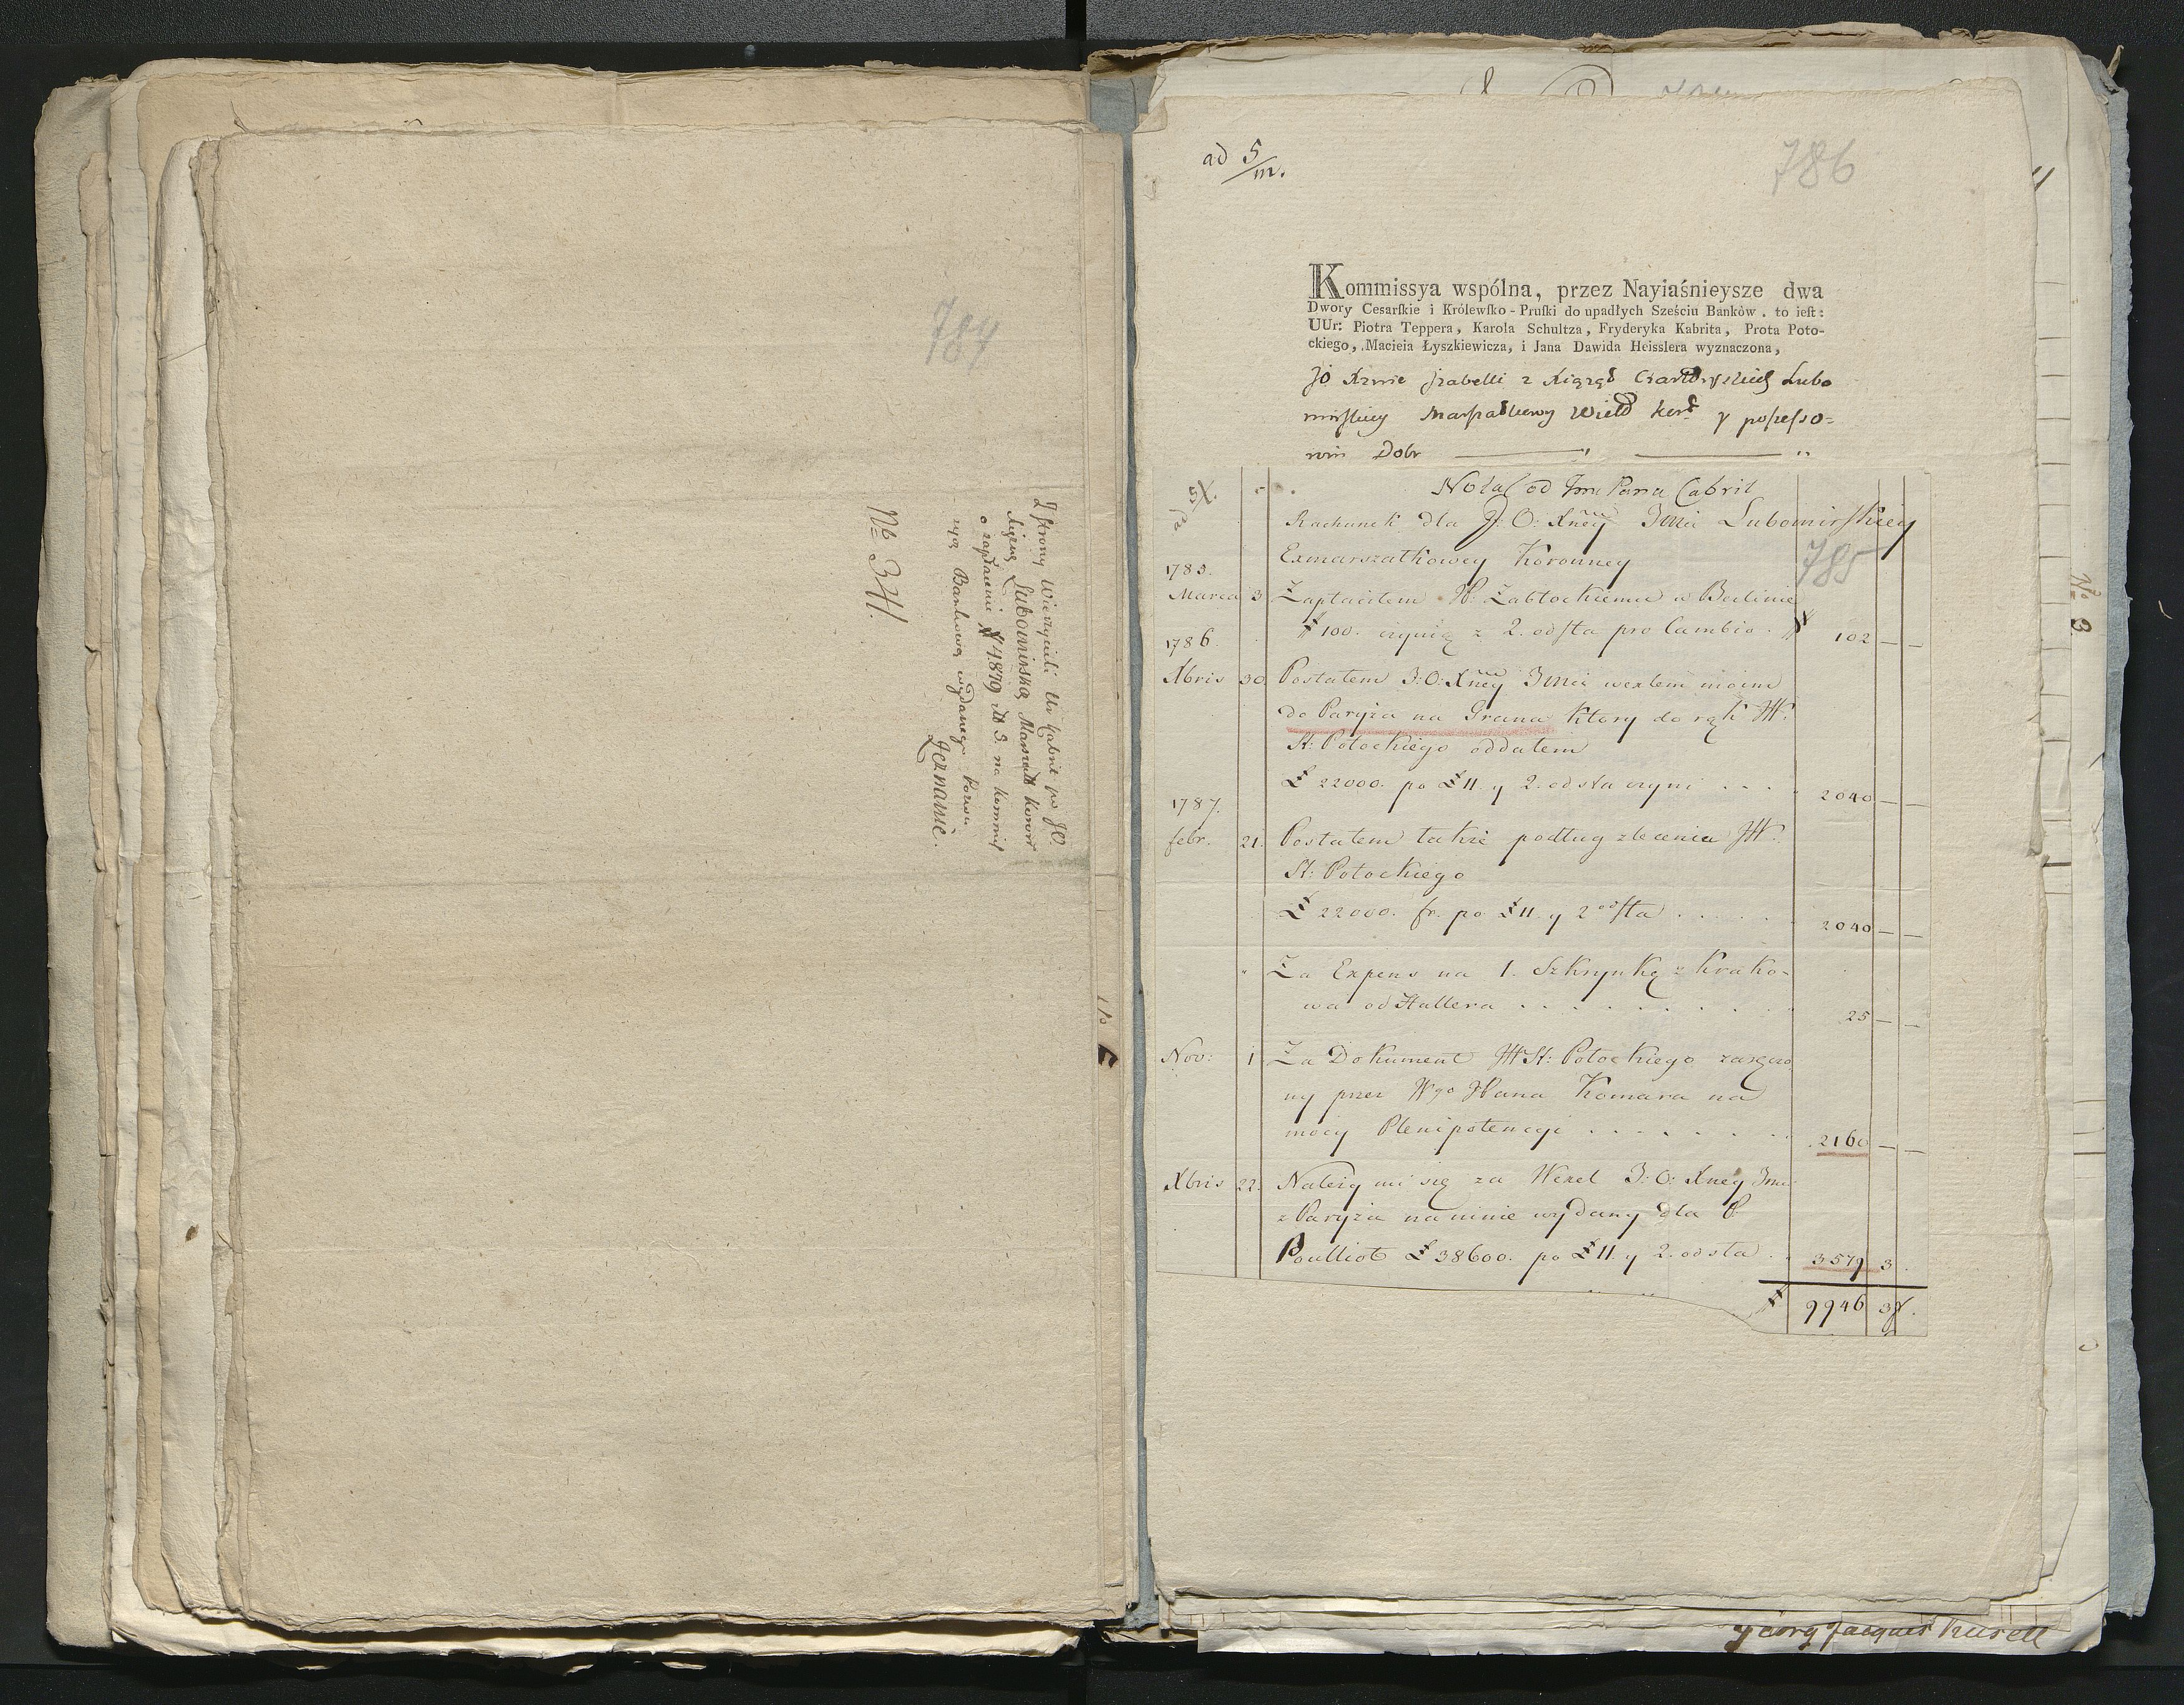 784
Z strony Wierzycieli Ur Kabrit po JO
Xiężnę Lubomirską Marszałł Koron
o zapłacenie # 4879 zł 3. na kommis
syą Bankową wydanego Pozwu
Zeznanie.
No 34.
ad 5/m.
786
Kommissya wspólna, przez Nayiaśnieysze dwa
Dwory Cesarſkie i Królewſko-Pruſki do upadłych Sześciu Banków, to ieſt:
UUr: Piotra Teppera, Karola Schultza, Fryderyka Kabrita, Prota Poto-
ckiego, Macieia Łyszkiewicza, i Jana Dawida Heisslera wyznaczona,
Jo Xznie Jzabelli z Xiążąt Czartoryskich Lubo
mirskiey Marszałkowy Wiel Kor y possesso=
rom Dobr
ad 5/
Nota od Jmci Pana Cabrit
Rachunek dla J: O: Xney Jmci Lubomirskiey
Exmarszałkowey Koronney
785
1785.
Marca 3 Zapłaciłem P: Zabłockiemu w Berlinie
# 100. czynią z 2. odſta pro Cambio . # 102 — —
1786.
Xbris 30. Posłałem J: O: Xney Jmci wexlem moim
do Paryża na Grana ktory do rąk JW.
St: Potockiego oddałem
₤ 22000. po ₤ 11 y 2. odsta czyni . . . 2040 — —
1787.
febr. 21. Posłałem także podług zlecenia JW.
St: Potockiego
₤ 22000. fr. po ₤ 11. y 2 odſta . . . . . 2040 — —
" Za Expens na 1. Szkrynkę z Krako-
wa od Hallera . . . . . . . . 25 — —
Nov: 1 Za Dokument JW St: Potockiego zaręczo
ny przez Wgo Pana Komara na
mocy Plenipotencyi . . . . . . . 2160 — —
Xbris 22. Należy mi się za Wexel J: O: Xney Jmci
z Paryża na mnie wydany dla P.
Poulliot ₤ 38600. po ₤ 11. y 2. odsta . 3579 3 .
# 9946 3 .
No 3
Georg Jacques